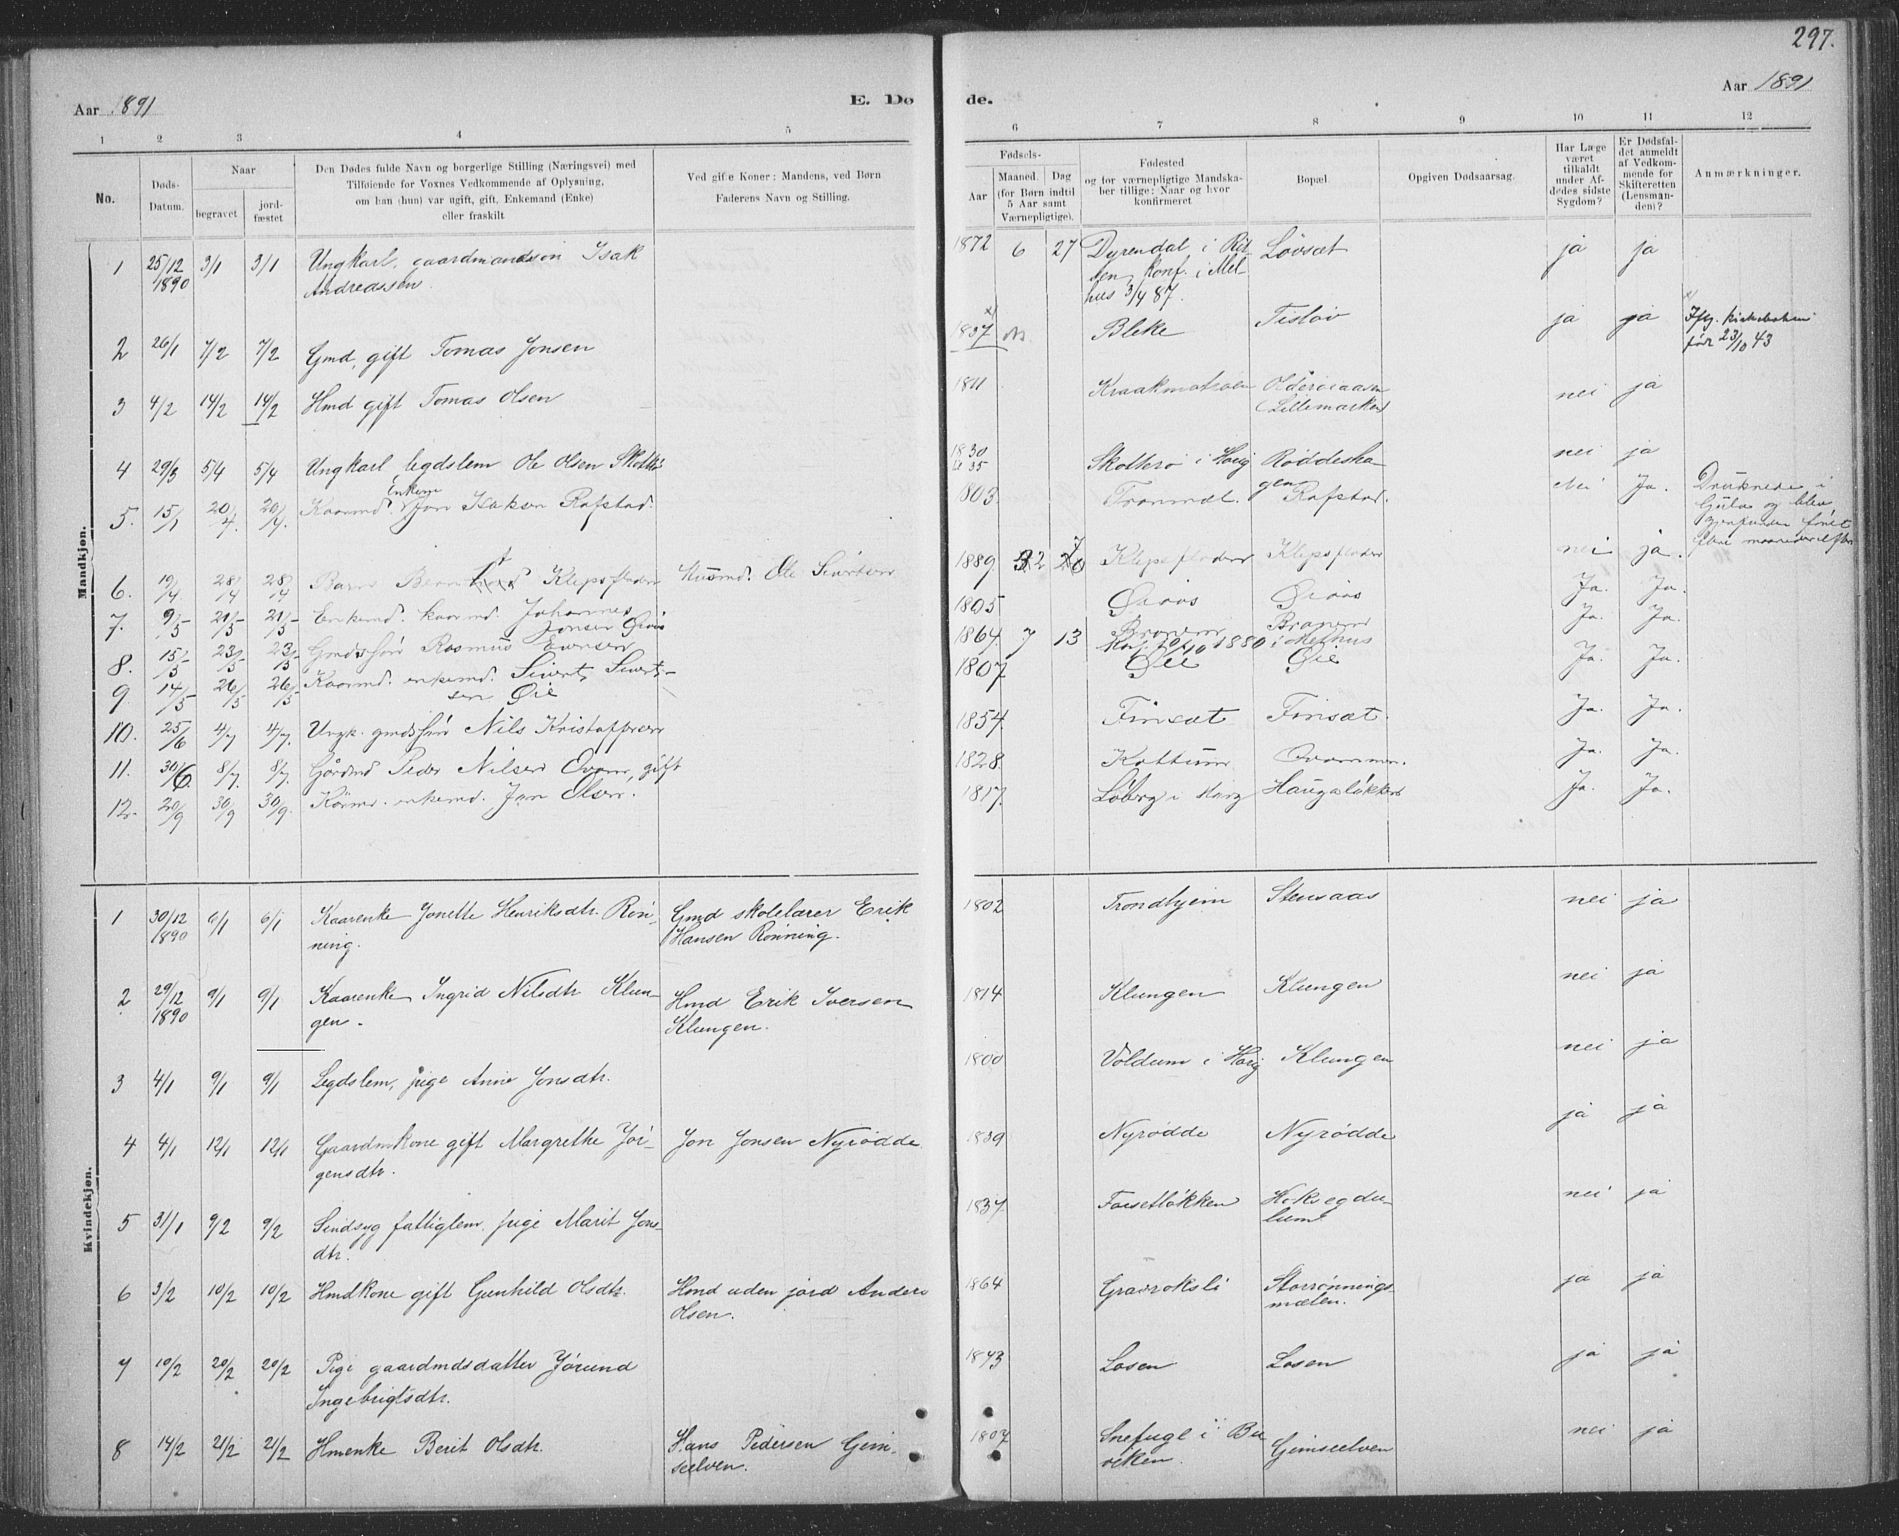 297.
Aar 1891
E. Dø
de.
Aar 1891
1 2 3 4 5 6 7 8 9 10 11 12
No.
Døds-
Datum.
Naar
begravet
jord-
fæstet
Den Dødes fulde Navn og borgerlige Stilling (Næringsvei) med
Tilføiende for Voxnes Vedkommende af Oplysning,
om han (hun) var ugift, gift, Enkemand (Enke)
eller fraskilt
Ved gifte Koner: Mandens, ved Børn
Faderens Navn og Stilling.
Fødsels-
Aar
Maaned. Dag
(for Børn indtil
5 Aar samt
Værnepligtige).
Fødested
og for værnepligtige Mandska-
ber tillige: Naar og hvor
konfirmeret
Bopæl.
Opgiven Dødsaarsag.
Har Læge
været
tilkaldt
under Af-
dødes sidste
Sygdom?
Er Dødsfal-
det anmeldt
af Vedkom-
mende for
Skifteretten
(Lensman-
den)?
Anmærkninger.
Mandkjøn.
1 25/12 1890 3/1 3/1 Ungkarl, gaardmandssøn Isak
Andreassen. 1872 6 27 Dyrendal i Rit-
sen, Konf. i Mel-
hus 3/4 87. Løvsæt ja ja
2 26/1 7/2 7/2 Gmd, gift Tomas Jonsen 1837 x) Bleke ja ja
før 23/10 43
3 4/2 14/2 14/2 Hmd gift Tomas Olsen 1811
(Lillemarken) nei ja
4 29/3 5/4 5/4 Ungkarl legdslem Ole Olsen 1830 i Høig nei ja
5. 15/1 20/4. 20/4. Kaarmd Enkem Jon Isaksen Rofstad. 1803 Rofstad. Nei Ja. Druknede i
Gula og blev
6. 19/4 28/4 28/4 Barn Klepsfladen Husmd. Ole Sivertsen 1889 Klepsfladen Klepsfladen nei ja.
7. 9/5 21/5 21/5 Enkemd. kaarmd. Johannes
Jonsen Øiaas 1805 Øiaas Øiaas Ja. Ja.
8. 15/5 23/5 23/5 Gmdssøn Rasmus Evensen 1864. 7 13 1880 i Melhus Ja. Ja.
9. 14/5 26/5 26/5 Kaarmd. enkemd. Sivert Sivert-
sen Øie 1807 Øie Øie Ja. Ja.
10. 25/6 4/7 4/7. Ungk. gmdssøn Nils Kristoffersen 1854 Finsæt Finsæt. Ja. Ja.
11. 30/6. 8/7. 8/7. Gårdmd Peder Nilsen Ovom, gift 1828. Kottum Ja. Ja.
12. 20/9 30/9 30/9. Kårmd. enkemd. Jon Olsen. 1817. Løberg i Horg Haugaløkken Ja. Ja.
Kvindekjøn.
1 30/12 1890 6/1 6/1 Kaarenke Jonette Henriksdtr. Røn-
ning. Gmd skolelærer Erik
Hansen Rønning. 1802 Trondhjem Stensaas nei ja
2 29/12 1890 9/1 9/1 Kaarenke Ingrid Nilsdtr Klun-
gen. Hmd Erik Iversen
Klungen. 1814 Klungen Klungen nei ja
3 4/1 9/1 9/1 Legdslem, pige Anne Jonsdtr. 1800 Voldum i Horg Klungen nei ja
4 4/1 12/1 12/1 Gaardmkone gift Margrethe Jør-
gensdtr. Jon Jonsen Nyrødde 1839 Nyrødde Nyrødde ja ja
5 31/1 9/2 9/2 Sindsyg fattiglem, pige Marit Jons-
dtr. 1837 Forsetløkken nei ja
6 3/2 10/2 10/2 Hmdkone gift Gunhild Olsdtr. Hmd uden jord Anders
Olsen. 1864 Gravroksli Storrønnings
mælen. ja ja
7 10/2 20/2 20/2 Pige gaardmdsdatter Jørund
Ingebrigtsdtr. 1843 Losen Losen ja ja
8 14/2 21/2 21/2 Hmenke Berit Olsdtr. Hans Pedersen Gim-
seelven. 1807 Snefugl i Bu-
viken. Gimseelven nei ja